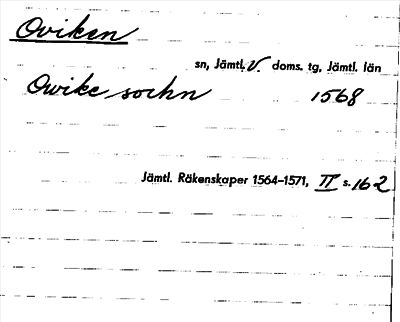 Oviken
sn, Jämtl. V. doms. tg, Jämtl. län
Owike sochn 1568
Jämtl. Räkenskaper 1564–1571, II s. 162